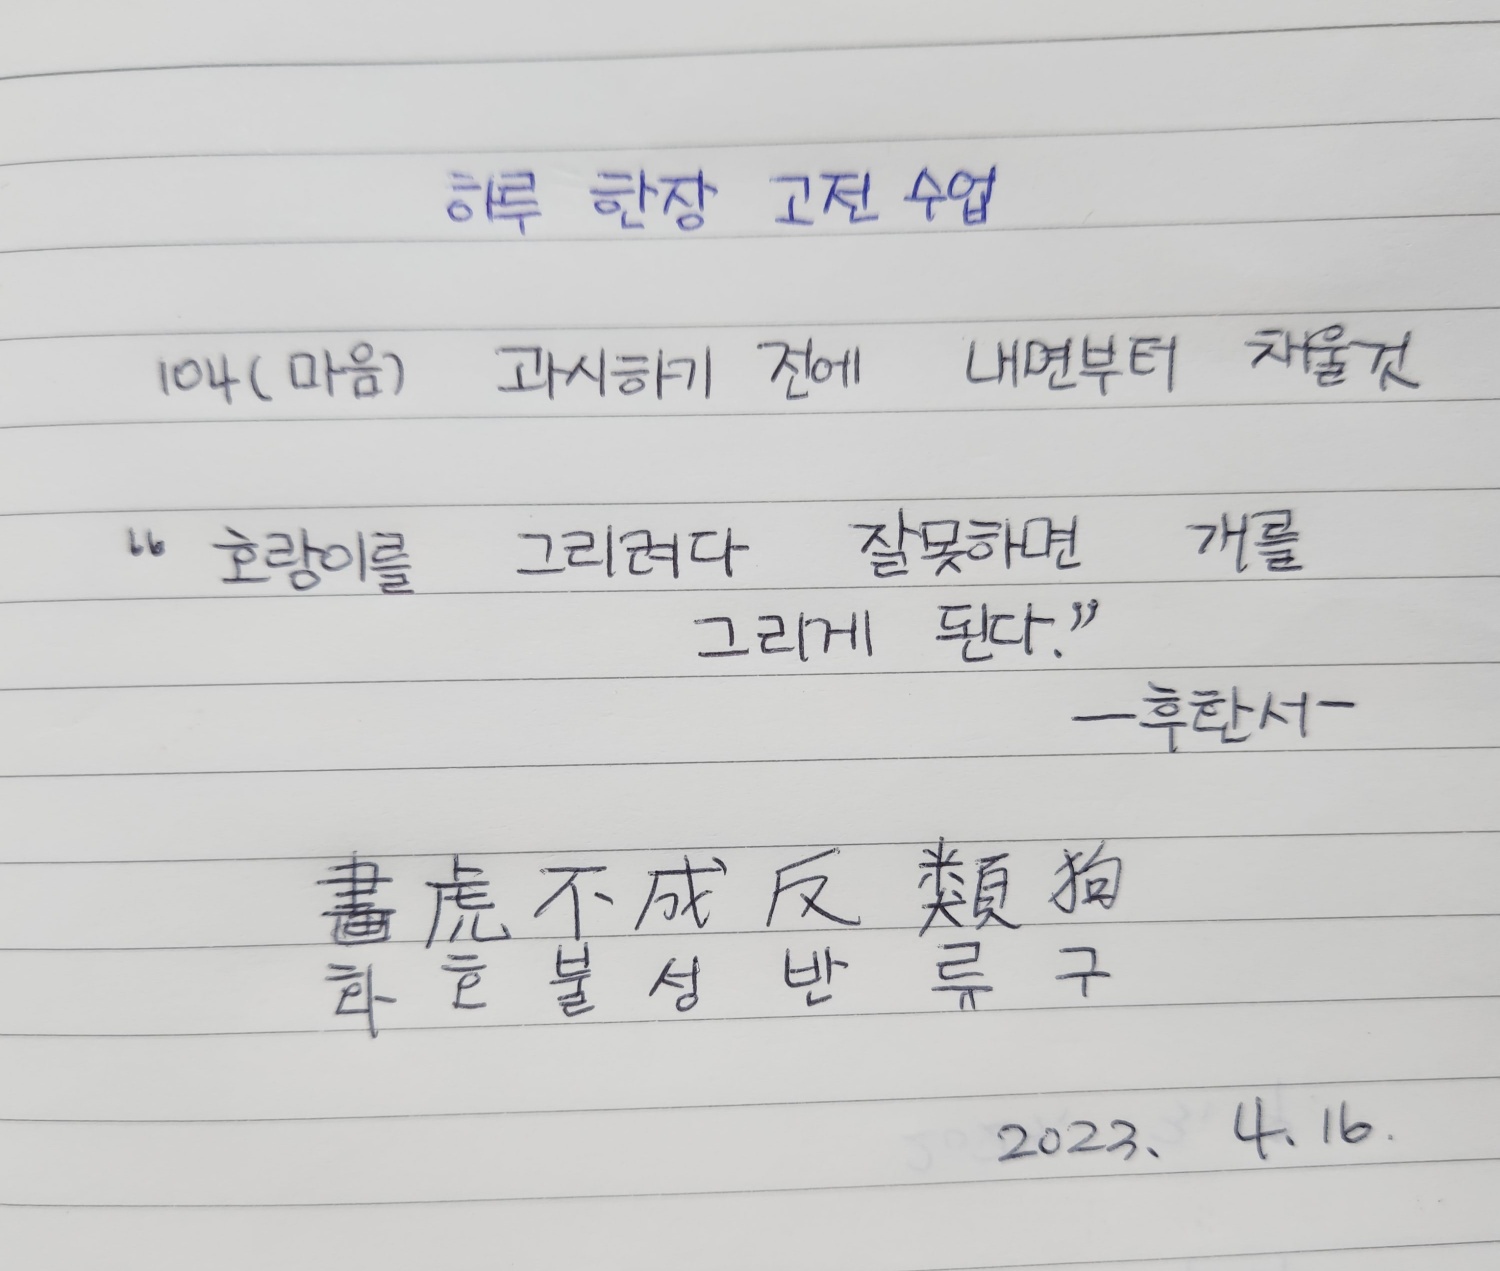 하루 한장 고전 수업
104(마음) 과시하기 전에 내면부터 채울것
“호랑이를 그리려다 잘못하면 개를
그리게 된다.”
—후한서—
畫虎不成反類狗
화호불성반류구
2023. 4. 16.